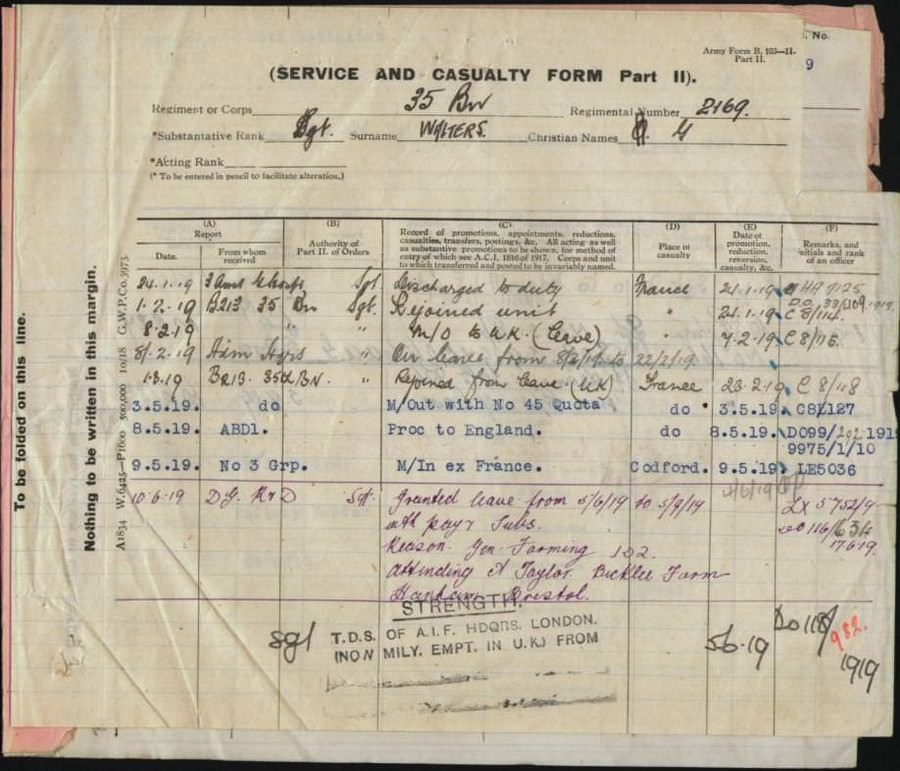 . No.
9
Army Form B. 103—II.
Part II.
(SERVICE AND CASUALTY FORM Part II).
Regiment or Corps 35 Bn Regimental Number 2169.
*Substantative Rank Sgt. Surname WALTERS. Christian Names G
*Acting Rank
(* To be entered in pencil to facilitate alteration.)
To be folded on this line.
Nothing to be written in this margin.
A1834 W.6425—P1600 500,000 10/18 G.W.P.Co.3973
(A) Report (B) (C) (D) (E) (F)
Date. From whom received Authority of Part II. of Orders Record of promotions, appointments, reductions, casualties, transfers, postings, &c. All acting as well as substantive promotions to be shown, for method of entry of which see A.C.I. 1816 of 1917. Corps and unit to which transferred and posted to be invariably named. Place of casualty Date of promotion, reduction, reversion, casualty, &c. Remarks, and initials and rank of an officer
24.1.19 Sgt Discharged to duty France 24.1.19
1.2.19 B213 35 Bn Sgt. Rejoined unit " 24.1.19 C 8/114.
8.2.19 " " M/O to U.K. (Leave) " 7.2.19 C 8/115.
8/.2.19 Adm Hqrs " On leave from 8/2/19 to 22/2/19.
1.3.19 B213. 35th BN. " Rejoined from leave (UK) France 23.2.19 C 8/118
3.5.19. do M/Out with No 45 Quota do 3.5.19. C8L127
8.5.19. ABD1. Proc to England. do 8.5.19. DO99/202 191
9975/1/10
9.5.19. No 3 Grp. M/In ex France. Codford. 9.5.19. LE5036
10.6.19 Sgt. Granted leave from 5/6/19 to 5/9/19 LX 5752/9
with pay & Subs. 116/634
Reason. Gen Farming 102. 17.6.19.
Attending A Taylor. Farm
Hanham Bristol.
STRENGTH.
Sgt T.D.S. OF A.I.F. HDQRS. LONDON. 5.6.19 Do 118/982.
(NON MILY. EMPT. IN U.K.) FROM 1919